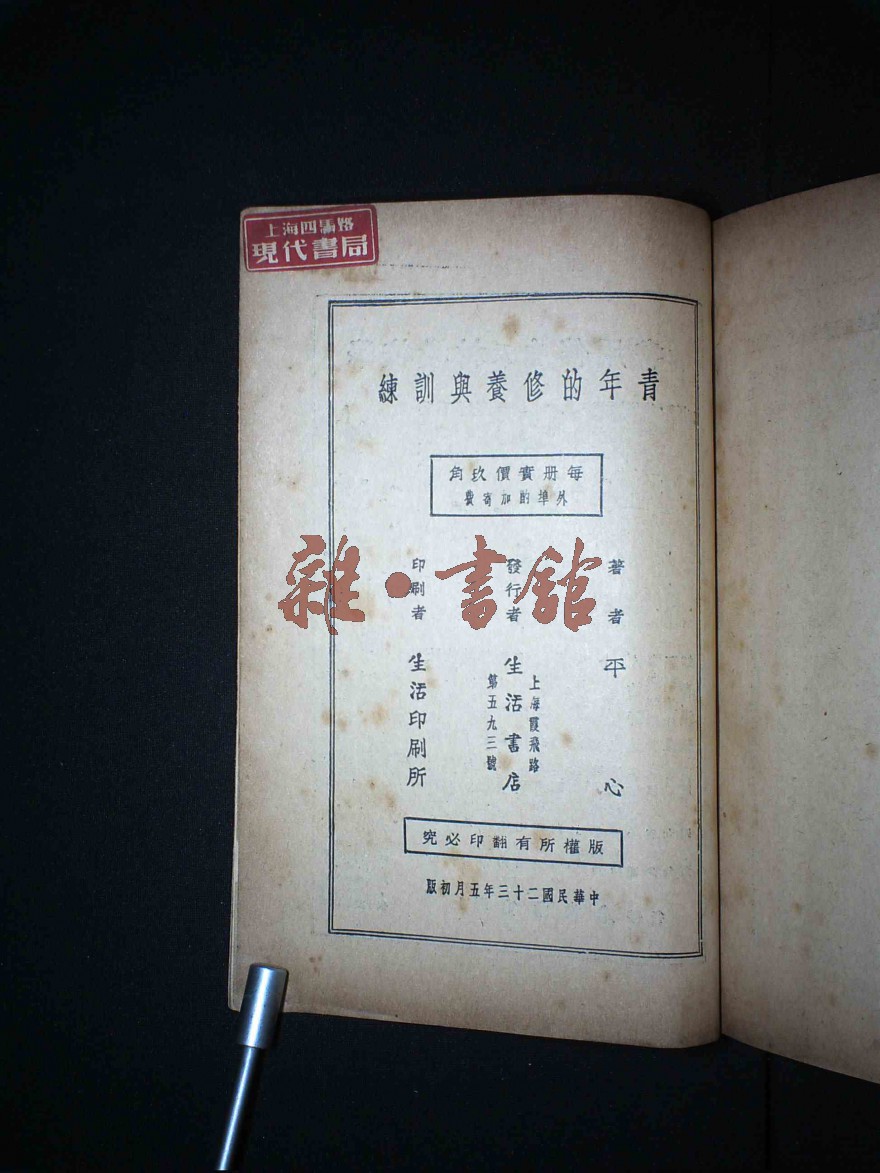 上海四馬路
現代書局
青年的修養與訓練
每册實價玖角
外埠酌加寄費
雜·書舘
著者 平心
發行者 生活書店
上海霞飛路
第五九三號
印刷者 生活印刷所
版權所有翻印必究
中華民國二十三年五月初版